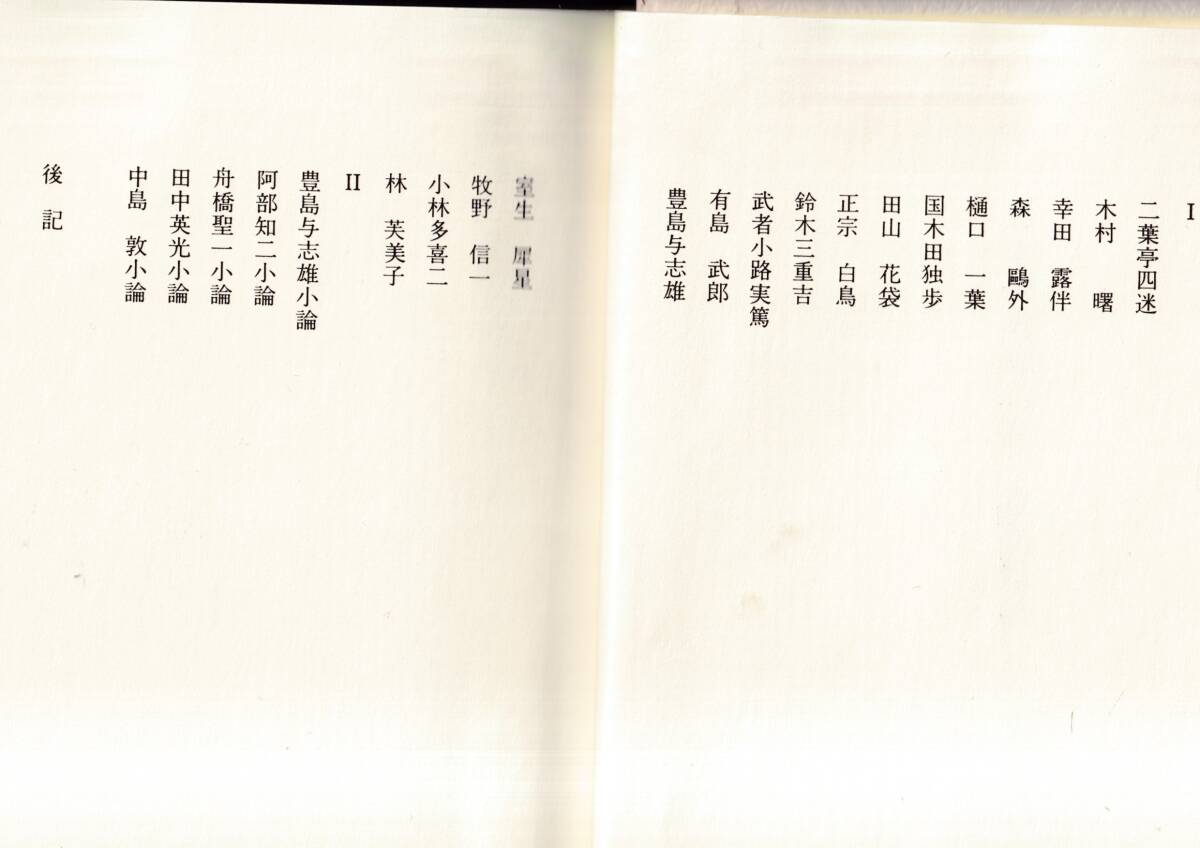 I
二葉亭四迷
木村 曙
幸田 露伴
森 鷗外
樋口 一葉
国木田独歩
田山 花袋
正宗 白鳥
鈴木三重吉
武者小路実篤
有島 武郎
豊島与志雄
室生 犀星
牧野 信一
小林多喜二
林 芙美子
II
豊島与志雄小論
阿部知二小論
舟橋聖一小論
田中英光小論
中島 敦小論
後記